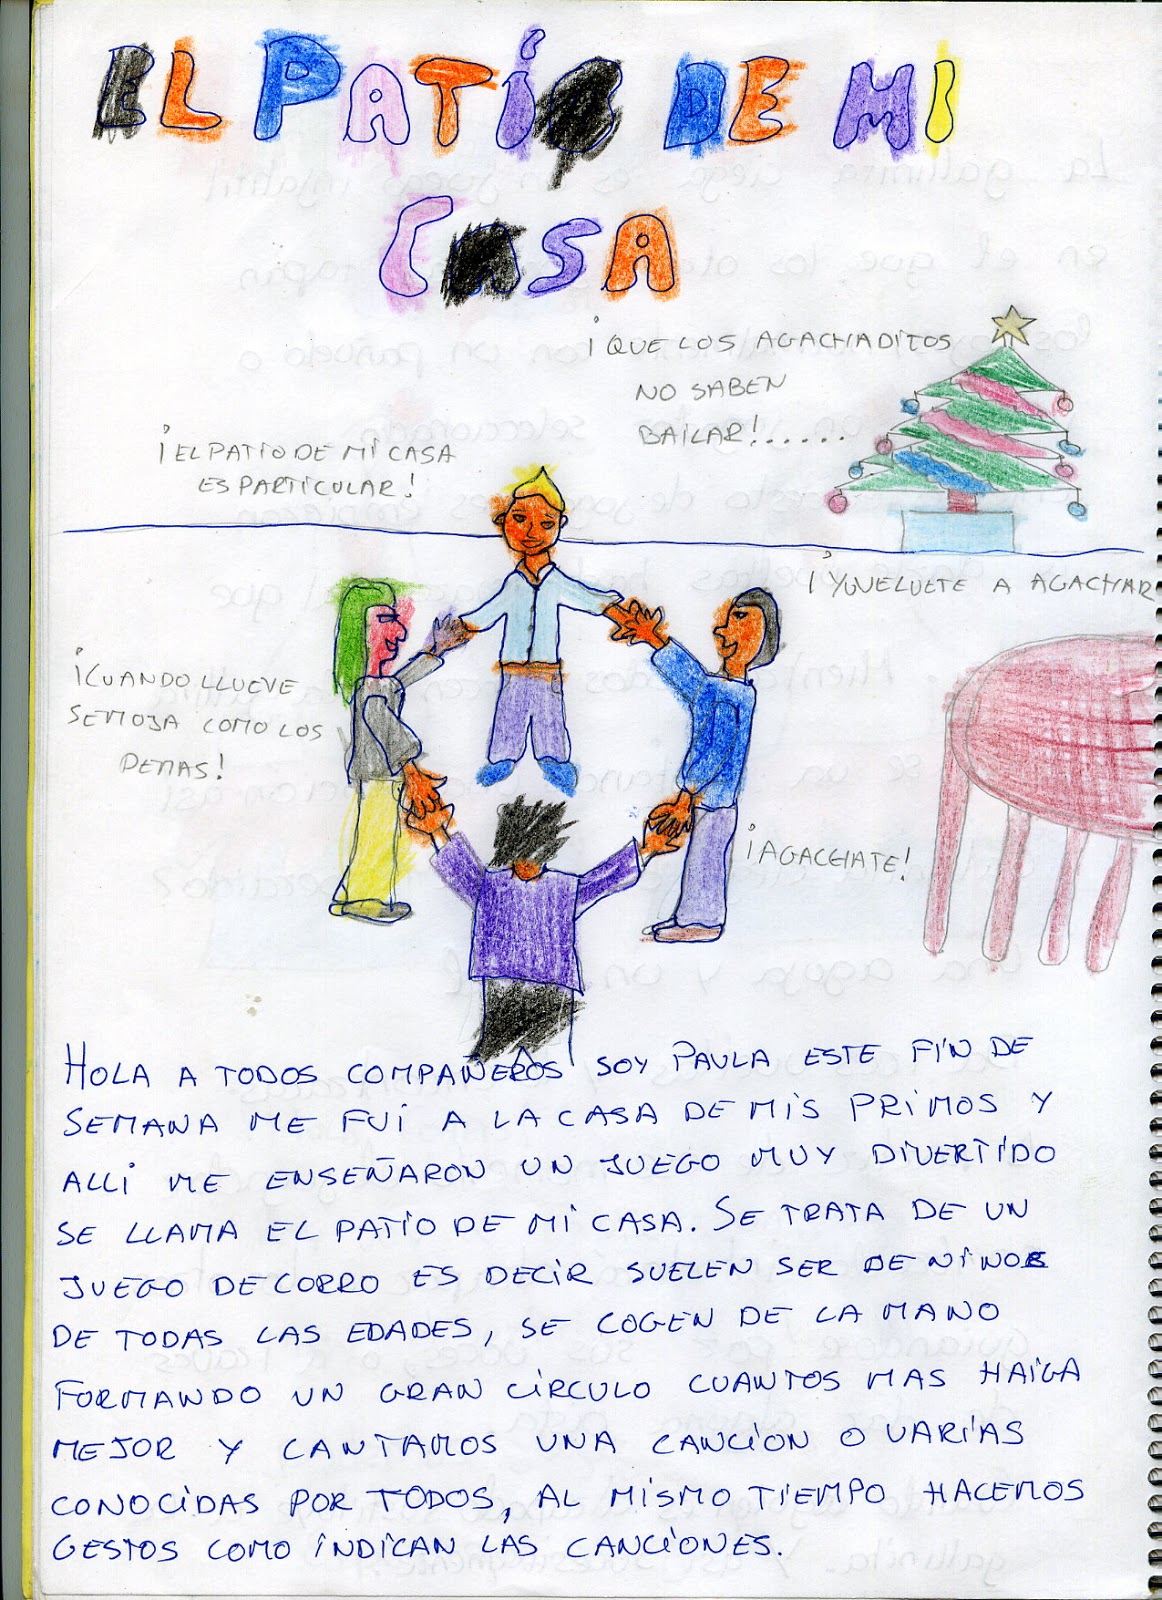 EL PATÍO DE MI
CASA
¡QUE LOS AGACHADITOS
NO SABEN
BAILAR!.....
¡EL PATIO DE MI CASA
ES PARTICULAR!
¡YVUELVETE A AGACHAR
¡CUANDO LLUEVE
SE MOJA COMO LOS
DEMAS!
¡AGACHATE!
HOLA A TODOS COMPAÑEROS SOY PAULA ESTE FIN DE
SEMANA ME FUI A LA CASA DE MIS PRIMOS Y
ALLI ME ENSEÑARON UN JUEGO MUY DIVERTIDO
SE LLAMA EL PATIO DE MI CASA. SE TRATA DE UN
JUEGO DE CORRO ES DECIR SUELEN SER DE NINOS
DE TODAS LAS EDADES, SE COGEN DE LA MANO
FORMANDO UN GRAN CÍRCULO CUANTOS MAS HAIGA
MEJOR Y CANTAMOS UNA CANCION O VARIAS
CONOCIDAS POR TODOS, AL MISMO TIEMPO HACEMOS
GESTOS COMO INDICAN LAS CANCIONES.